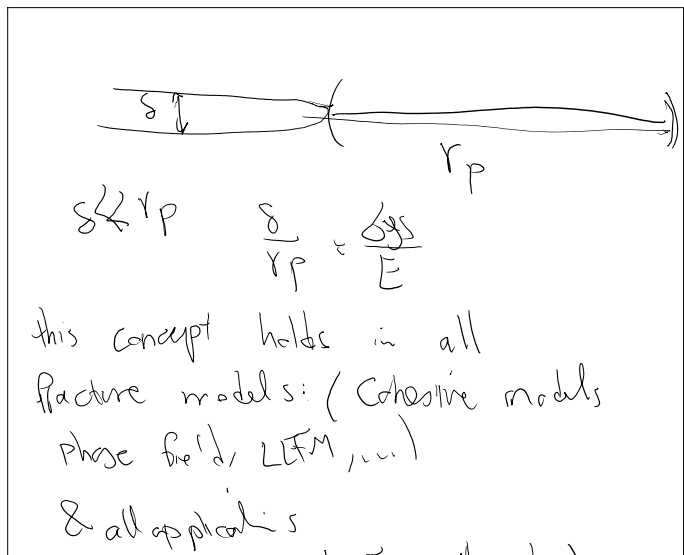 δ
r_p
δ ≪ r_p δ/r_p = σ_ys/E
this concept holds in all
fracture models: (Cohesive models
phase field, LEFM, ....)
& all applications